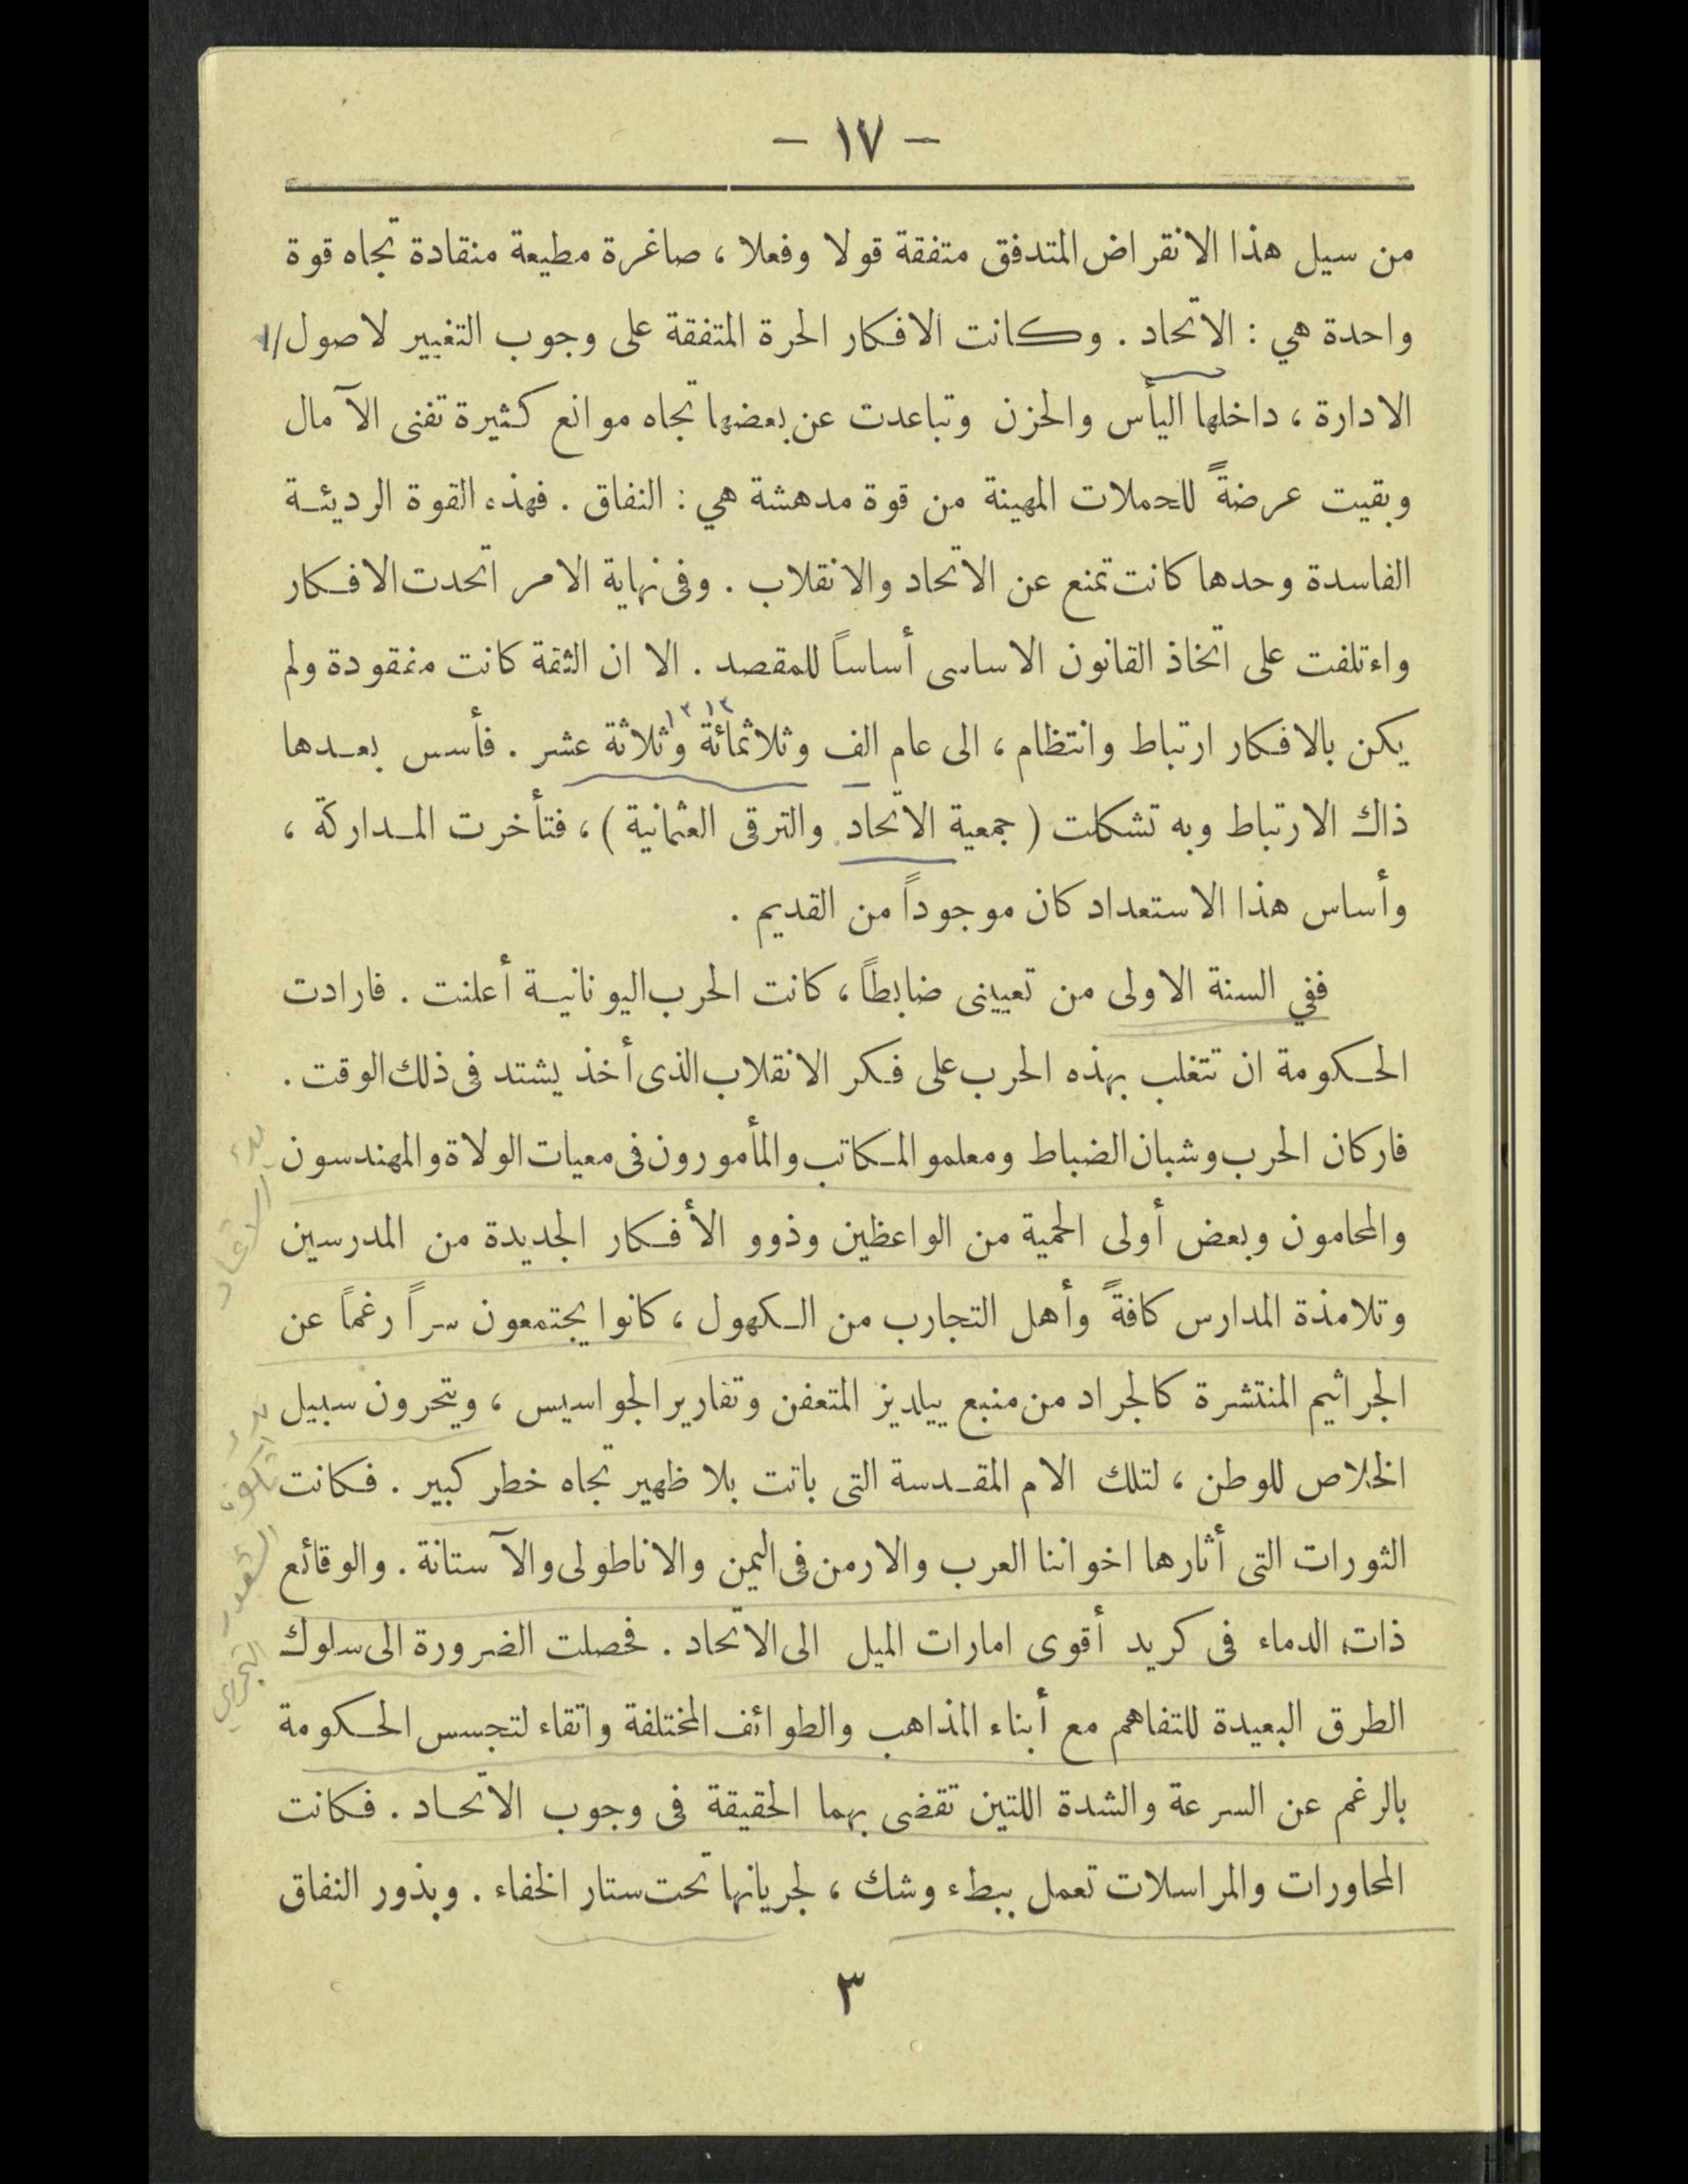 — ١٧ —
من سيل هذا الانقراض المتدفق متفقة قولا وفعلا ، صاغرة مطيعة منقادة تجاه قوة
واحدة هي : الاتحاد . وكانت الافكار الحرة المتفقة على وجوب التغيير لاصول
الادارة ، داخلها اليأس والحزن وتباعدت عن بعضها تجاه موانع كثيرة تفنى الآمال
وبقيت عرضةً للحملات المهينة من قوة مدهشة هي : النفاق . فهذه القوة الرديئة
الفاسدة وحدها كانت تمنع عن الاتحاد والانقلاب . وفى نهاية الامر اتحدت الافكار
واءتلفت على اتخاذ القانون الاساسى أساساً للمقصد . الا ان الثقة كانت مفقودة ولم
١٣١٣
يكن بالافكار ارتباط وانتظام ، الى عام الف وثلاثمائة وثلاثة عشر . فأسس بعدها
ذاك الارتباط وبه تشكلت ( جمعية الاتحاد والترقى العثمانية ) ، فتأخرت المداركة ،
وأساس هذا الاستعداد كان موجوداً من القديم .
ففي السنة الاولى من تعيينى ضابطاً ، كانت الحرب اليونانية أعلنت . فارادت
الحكومة ان تتغلب بهذه الحرب على فكر الانقلاب الذى أخذ يشتد فى ذلك الوقت .
فاركان الحرب وشبان الضباط ومعلمو المكاتب والمأمورون فى معيات الولاة والمهندسون
والمحامون وبعض أولى الحمية من الواعظين وذوو الأفكار الجديدة من المدرسين
وتلامذة المدارس كافةً وأهل التجارب من الكهول ، كانوا يجتمعون سراً رغماً عن
الجراثيم المنتشرة كالجراد من منبع ييلديز المتعفن وتقارير الجواسيس ، ويتحرون سبيل
الخلاص للوطن ، لتلك الام المقدسة التى باتت بلا ظهير تجاه خطر كبير . فكانت
الثورات التى أثارها اخواننا العرب والارمن فى اليمن والاناطولى والآستانة . والوقائع
ذات الدماء فى كريد أقوى امارات الميل الى الاتحاد . فحصلت الضرورة الى سلوك
الطرق البعيدة للتفاهم مع أبناء المذاهب والطوائف المختلفة واتقاء لتجسس الحكومة
بالرغم عن السرعة والشدة اللتين تقضى بهما الحقيقة فى وجوب الاتحاد . فكانت
المحاورات والمراسلات تعمل ببطء وشك ، لجريانها تحت ستار الخفاء . وبذور النفاق
٣